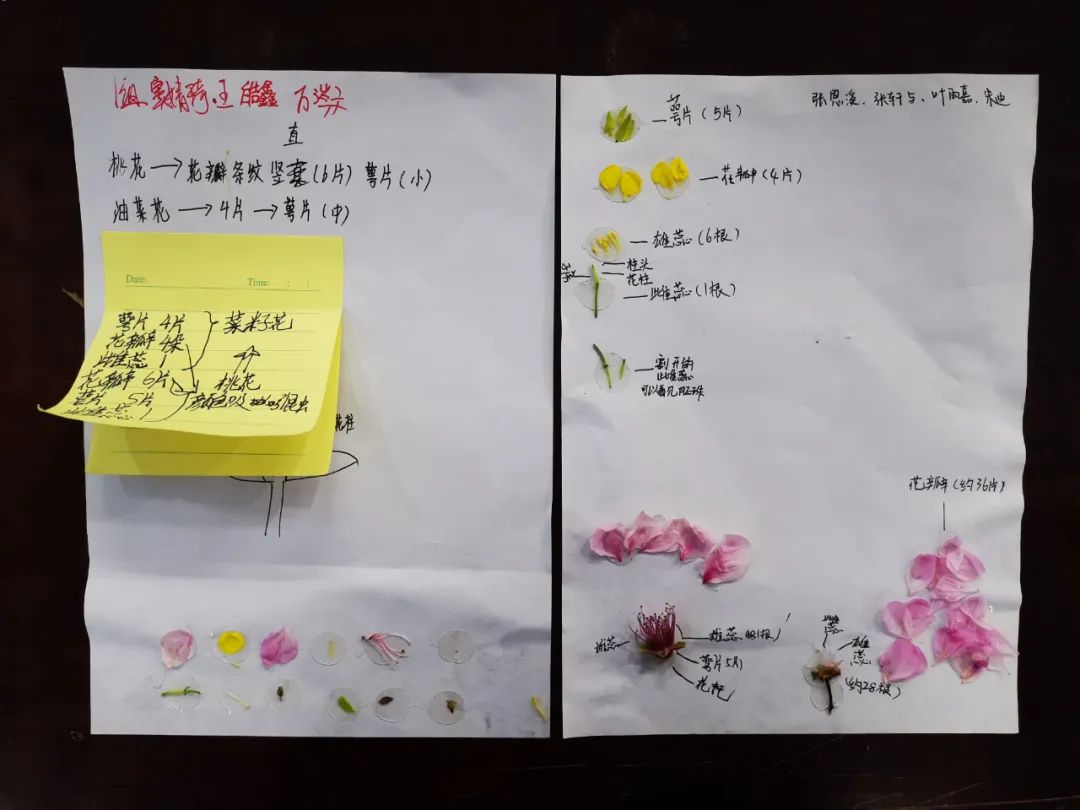 直
桃花→花瓣条纹竖(6片) 萼片(小)
油菜花→4片→萼片(中)
Date: Time: : :
萼片 4片
花瓣 4朵
雌蕊 1
菜籽花
花瓣 6片
桃花
萼片 5片
雌蕊 1
颜色吸 昆虫
花柱
张恩溪、张轩与、叶雨嘉、宋迪
萼片(5片)
花瓣(4片)
雄蕊(6根)
柱头
花柱
子房
雌蕊(1根)
割开的
雌蕊
可以看见胚珠
花瓣(约36片)
雌蕊
雄蕊(81根)
萼片5片
花托
雌蕊
雄蕊
(约28根)